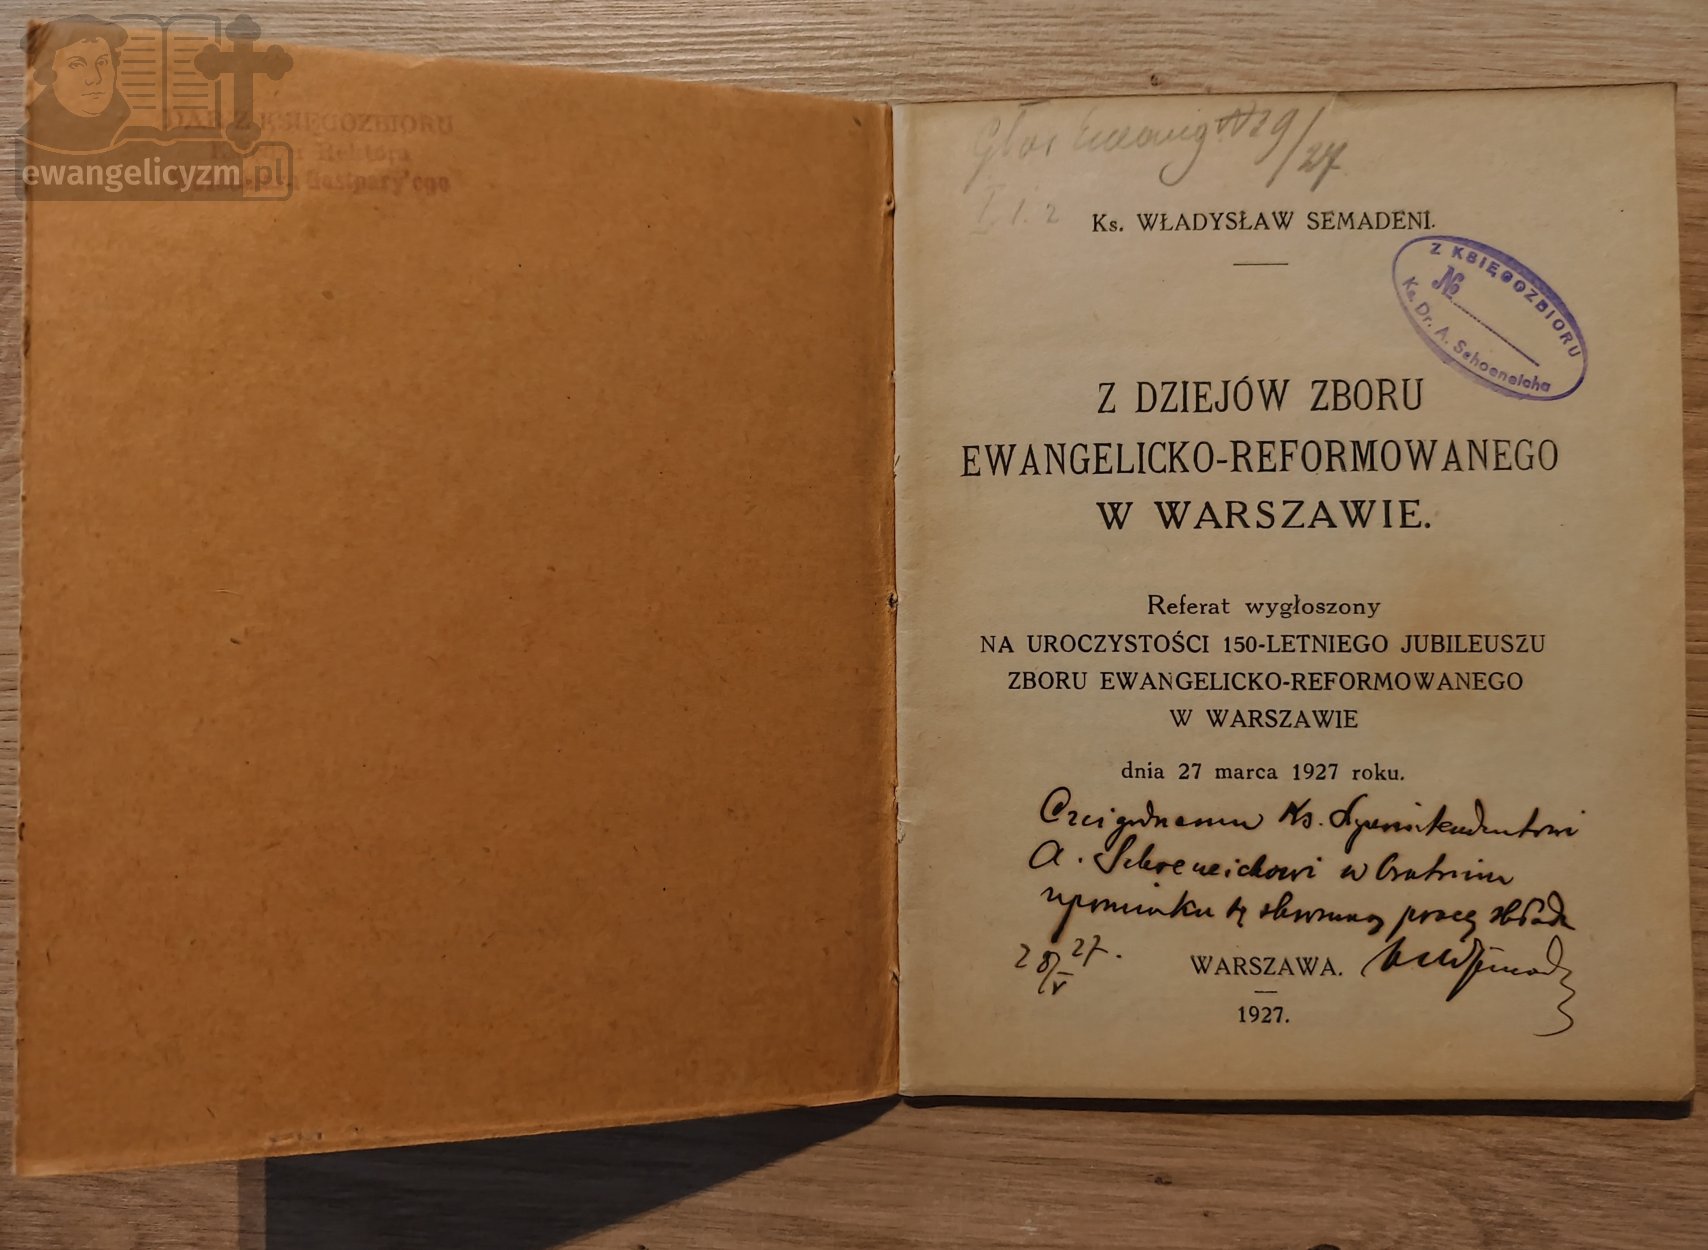 ewangelicyzm.pl
DAR Z KSIĘGOZBIORU
Głos Ewang. № 9/27
I. 1. 2
Ks. WŁADYSŁAW SEMADENI.
Z KSIĘGOZBIORU
№
Ks. Dr. A. Schoeneicha
Z DZIEJÓW ZBORU
EWANGELICKO-REFORMOWANEGO
W WARSZAWIE.
Referat wygłoszony
NA UROCZYSTOŚCI 150-LETNIEGO JUBILEUSZU
ZBORU EWANGELICKO-REFORMOWANEGO
W WARSZAWIE
dnia 27 marca 1927 roku.
Czcigodnemu Ks. Superintendentowi
A. Schoeneichowi w bratnim
upominku tę skromną pracę składa
28/V 27.
WARSZAWA.
1927.